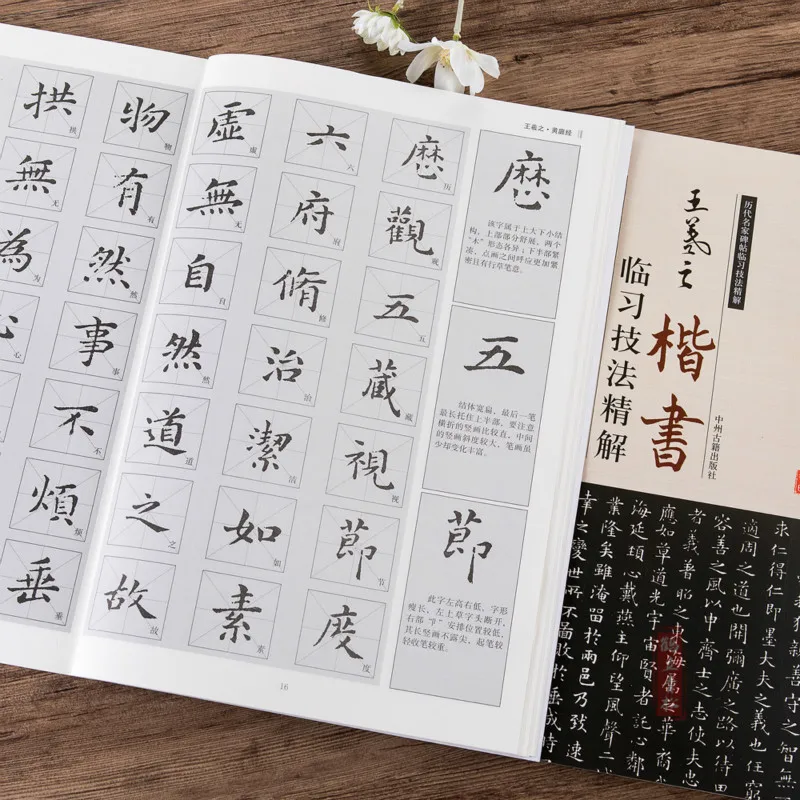 王羲之·黄庭经
歷觀五藏視節度
历
观
五
藏
视
节
度
六府脩治潔如素
六
府
修
治
洁
如
素
虛無自然道之故
虚
无
自
然
道
之
故
物有然事不煩垂
物
有
然
事
不
烦
垂
拱無為心
拱
无
为
心
歷
该字属于上大下小结
构，上部部分舒展，两个
“木”形态各异；下半部紧
凑，点画之间呼应更加紧
密且有行草笔意。
五
结体宽扁，最后一笔
最长托住上半部，要注意
横折的竖画比较直，中间
的竖画斜度较大，笔画虽
少却变化丰富。
節
此字左高右低，字形
瘦长，左上草字头断开，
右部“卩”安排位置较低，
其长竖画不露尖，起笔较
轻收笔较重。
16
历代名家碑帖临习技法精解
王羲之
楷書
临习技法精解
中州古籍出版社
親善守之智無
求仁得仁即墨大夫之義也任窮
適周之道也開彌廣之路以待田
容善之風以申齊士之志使夫忠
者義著昭之東海屬於華裔
應如草道光宇宙賢者託心鄰
海延頸心戴燕主仰望風聲二
業隆矣雖淹留於兩邑乃致速
幸之變世所不圖敗於垂成時